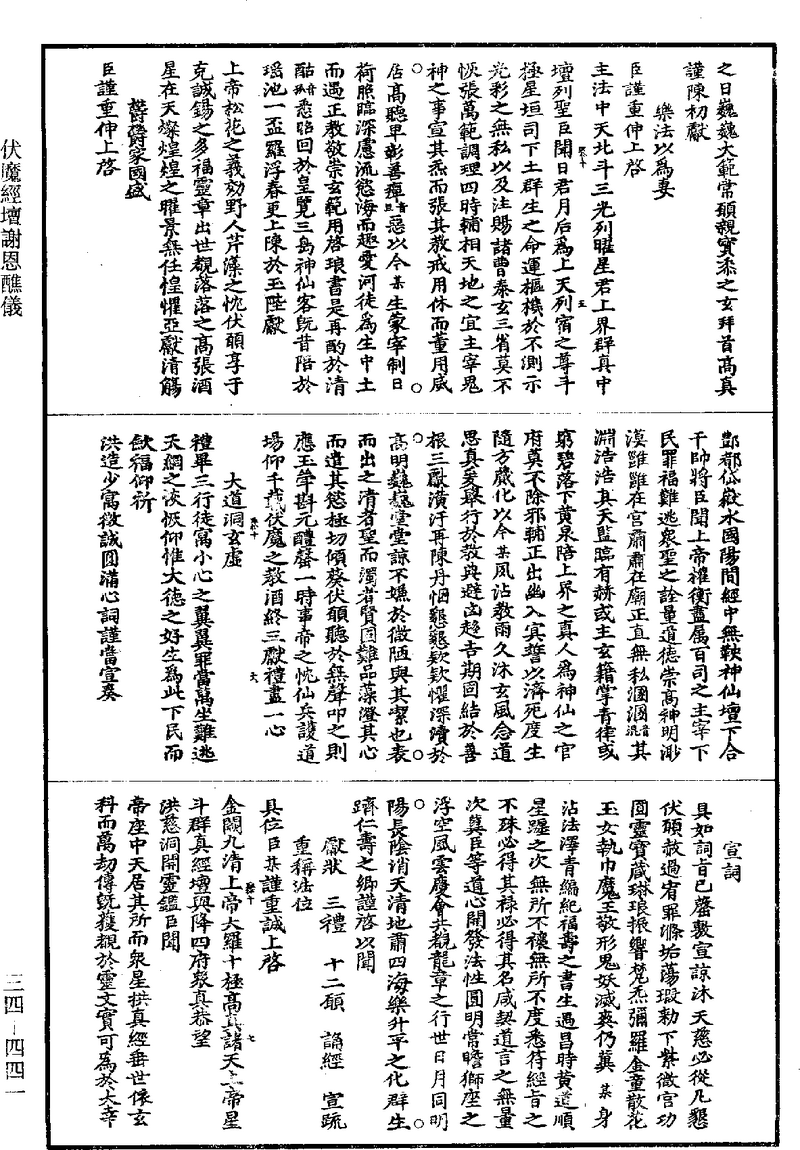 之日巍巍大範常願親寶炁之玄拜首高真
謹陳初獻
樂法以為妻
臣謹重伸上啓
主法中天北斗三光列曜星君上界群真中
壇列聖臣聞日君月后為上天列宿之尊斗
極星垣司下土群生之命運樞機於不測示
光彩之無私以及注賜諸曹泰玄三省莫不
恢張萬範調理四時輔相天地之宜主宰鬼
神之事宣其炁而張其教戒用休而董用威
居高聽卑彰善癉惡以今某生蒙宰制日
荷照臨深慮流慾海而趣愛河徒為生中土
而遇正教敬崇玄範用啓琅書是再酌於清
酤悉昭回於皇覽三島神仙客旣昔陪於
瑶池一盃羅浮春更上陳於玉陛獻
上帝松花之義効野人芹藻之忱伏願享于
克誠錫之多福靈章出世覩落落之高張酒
星在天燦煌煌之曜景無任惶懼亞獻清觴
欝欝家國盛
臣謹重伸上啓
酆都岱嶽水國陽間經中無鞅神仙壇下合
干帥將臣聞上帝權衡盡属百司之主宰下
民罪福難逃衆聖之詮量道德崇高神明渺
漠雖雖在宮肅肅在廟正直無私涸涸其
淵浩浩其天監臨有赫或主玄籍掌青律或
窮碧落下黄泉陪上界之真人為神仙之官
府莫不除邪輔正出幽入冥誓以濟死度生
隨方威化以今某夙沾教雨久沐玄風念道
思真爰舉行於教典避凶趨吉期固結於善
根三獻潢汙再陳丹悃懇懇欵欵懼深瀆於
高明巍巍堂堂諒不嫌於微陋與其潔也表
而出之清者聖而濁者賢固難品藻澄其心
而遣其慾極切傾葵伏願聽於無聲叩之則
應玉笋斟元醴罄一時事帝之忱仙兵護道
場仰千載伏魔之教酒終三獻禮盡一心
大道洞玄虛
禮畢三行徒寓小心之翼翼罪當萬坐難逃
天網之恢恢仰惟大德之好生為此下民而
飲福仰祈
洪造少寓微誠圓滿心詞謹當宣奏
宣詞
具如詞旨已罄敷宣諒沐天慈必從凡懇
伏願赦過宥罪滌垢蕩瑕勑下紫微宫功
圓靈寶蔵琳琅振響梵炁彌羅金童散花
玉女執巾魔王敬形鬼妖滅爽仍冀某身
沾法澤青編紀福壽之書生遇昌時黄道順
星躔之次無所不禳無所不度悉符經旨之
不殊必得其祿必得其名咸契道言之無量
次冀臣等道心開發法性圓明當瞻獅座之
浮空風雲慶會共覩龍章之行世日月同明
陽長陰消天清地肅四海樂升平之化群生
躋仁壽之鄉謹啓以聞
獻狀 三禮 十二願 誦經 宣疏
重稱法位
具位臣某謹重誠上啓
金闕九清上帝大羅十極高真諸天上帝星
斗群真經壇與降四府衆真恭望
洪慈洞開靈鑑臣聞
帝座中天居其所而衆星拱真經垂世依玄
科而萬劫傳旣獲覩於靈文實可為於大幸
伏魔經壇謝恩醮儀
三四—四四一